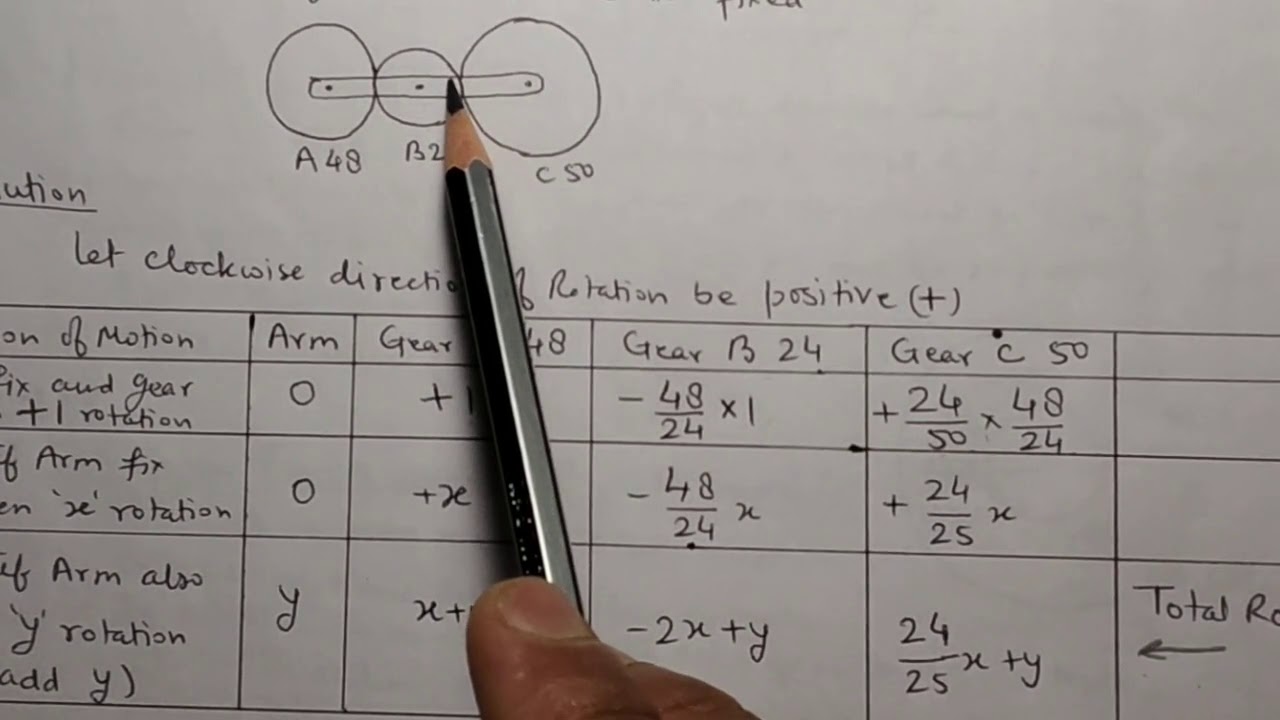 fixed
A 48 B2 C 50
ution
Let clockwise directio f Rotation be positive (+)
on of Motion Arm Gear 48 Gear B 24 Gear C 50
fix and gear
+1 rotation 0 +1 - 48/24 x 1 + 24/50 x 48/24
if Arm fix
en 'x' rotation 0 +x - 48/24 x + 24/25 x
if Arm also
'y' rotation y x+ -2x+y 24/25 x + y Total Ro
add y) ←